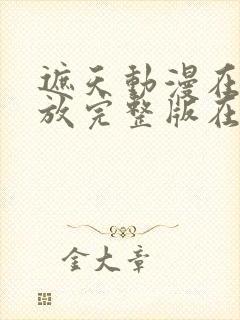 遮天動漫在
放完整版在
金大章